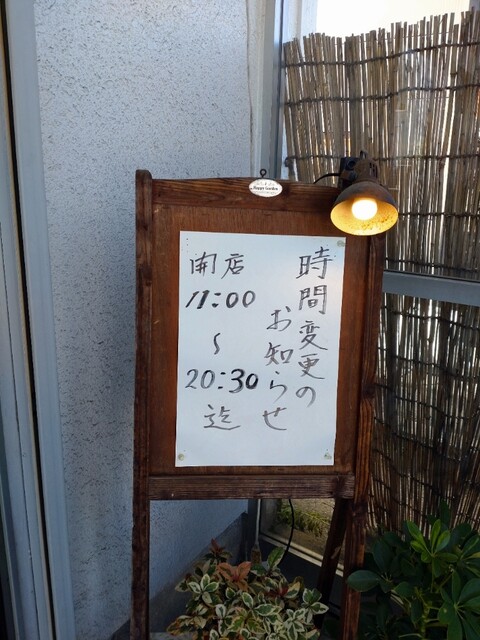 時間変更の
お知らせ
開店
11:00
〜
20:30
迄
Happy Garden